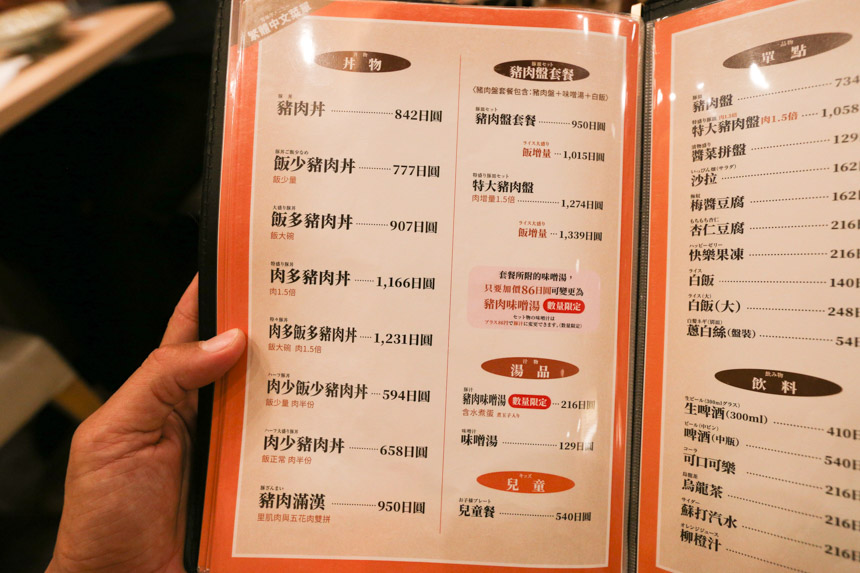 繁體中文菜單
丼物
豚丼
豬肉丼 842日圓
豚丼ご飯少なめ
飯少豬肉丼 777日圓
飯少量
大盛り豚丼
飯多豬肉丼 907日圓
飯大碗
特盛り豚丼
肉多豬肉丼 1,166日圓
肉1.5倍
肉多飯多豬肉丼 1,231日圓
飯大碗 肉1.5倍
ハーフ豚丼
肉少飯少豬肉丼 594日圓
飯少量 肉半份
ハーフ大盛り豚丼
肉少豬肉丼 658日圓
飯正常 肉半份
豚ざんまい
豬肉滿漢 950日圓
里肌肉與五花肉雙拼
豚皿セット
豬肉盤套餐
〈豬肉盤套餐包含：豬肉盤＋味噌湯＋白飯〉
豚皿セット
豬肉盤套餐 950日圓
ライス大盛り
飯增量 1,015日圓
特盛り豚皿セット
特大豬肉盤
肉增量1.5倍 1,274日圓
ライス大盛り
飯增量 1,339日圓
套餐所附的味噌湯，
只要加價86日圓可變更為
豬肉味噌湯 數量限定
セット物の味噌汁は
プラス86円で豚汁に変更できます。(数量限定)
汁物
湯品
豚汁
豬肉味噌湯 數量限定 216日圓
含水煮蛋 煮玉子入り
味噌汁
味噌湯 129日圓
キッズ
兒童
お子様プレート
兒童餐 540日圓
一品物
單點
豚皿
豬肉盤 734
特盛り豚皿 肉1.5倍
特大豬肉盤 肉1.5倍 1,058
漬物盛り
醬菜拼盤 129
いっぴん畑(サラダ)
沙拉 162
梅醬豆腐 162
もちもち杏仁
杏仁豆腐 216
ハッピーゼリー
快樂果凍 216
ライス
白飯 140
ライス(大)
白飯(大) 248
白髪ネギ(別皿)
蔥白絲(盤裝) 54
飲み物
飲料
生ビール(300mlグラス)
生啤酒(300ml) 410
ビール(中ビン)
啤酒(中瓶) 540
コーラ
可口可樂 216
烏龍茶
烏龍茶 216
サイダー
蘇打汽水 216
オレンジジュース
柳橙汁 216